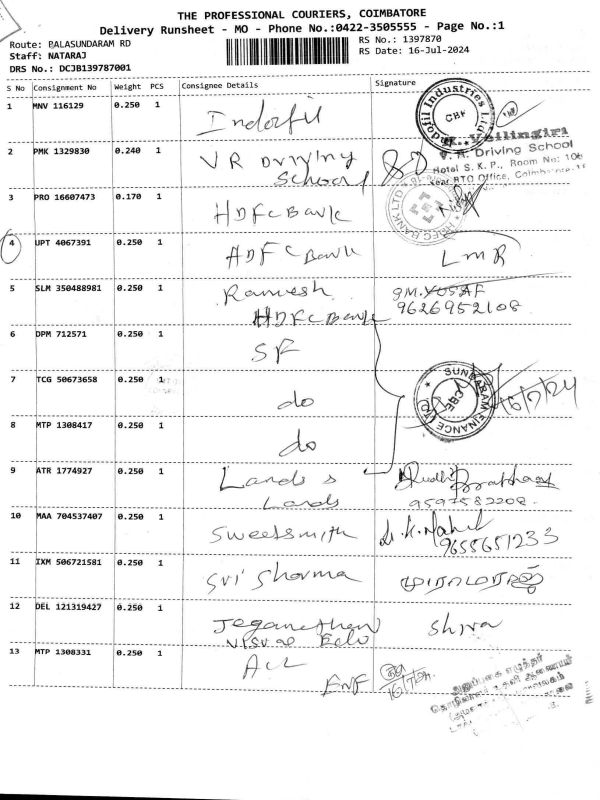 THE PROFESSIONAL COURIERS, COIMBATORE
Delivery Runsheet - MO - Phone No.:0422-3505555 - Page No.:1
Route: BALASUNDARAM RD
RS No.: 1397870
Staff: NATARAJ
RS Date: 16-Jul-2024
DRS No.: DCJB139787001
S No Consignment No Weight PCS Consignee Details Signature
1 MNV 116129 0.250 1 Indofil
2 PMK 1329830 0.240 1 V R Driving School
V. R. Driving School
Hotel S. K. P., Room No: 106
Near RTO Office, Coimbatore-18
3 PRO 16607473 0.170 1 HDFC Bank
HDFC BANK LTD
4 UPT 4067391 0.250 1 HDFC Bank LMR
5 SLM 350488981 0.250 1 Ramesh
HDFC Bank
9626952108
6 DPM 712571 0.250 1 SF
SUNDARAM FINANCE
CBE
16/7/24
7 TCG 50673658 0.250 1 do
8 MTP 1308417 0.250 1 do
9 ATR 1774927 0.250 1 Lands &
Lands
9597582208
10 MAA 704537407 0.250 1 Sweetsmith
9655651233
11 IXM 506721581 0.250 1 Sri Sharma
12 DEL 121319427 0.250 1 Jeganathan Shiva
13 MTP 1308331 0.250 1 ACL